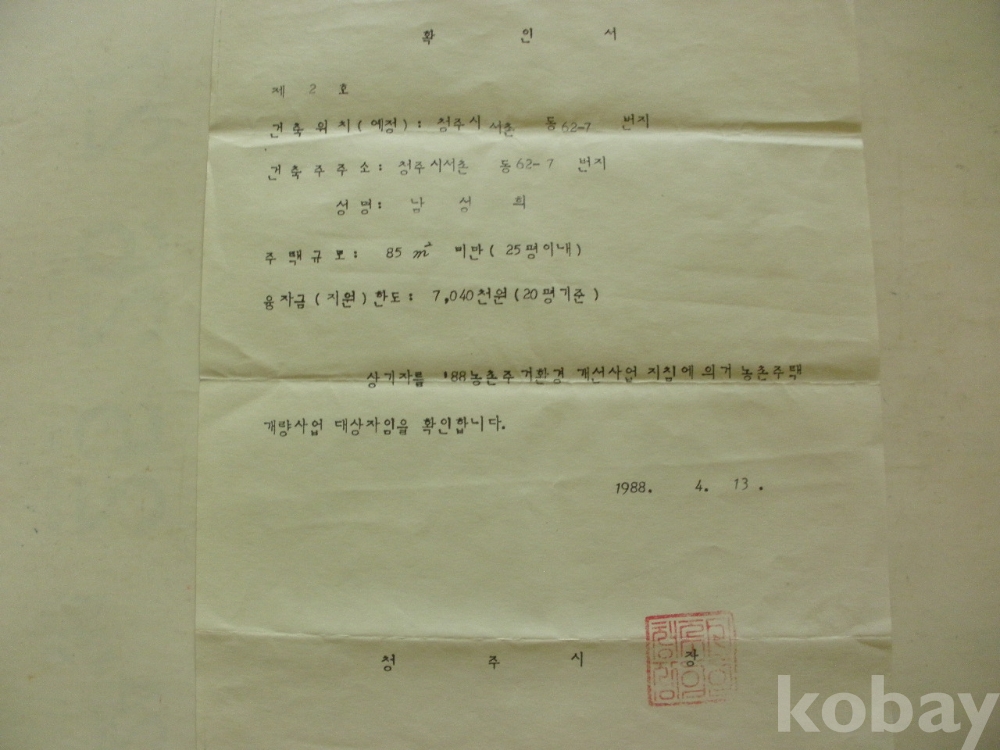 확 인 서
제 2 호
건축위치(예정): 청주시 서촌 동 62-7 번지
건축주주소: 청주시서촌 동 62-7 번지
성명: 남 성 희
주택규모: 85 m² 미만(25평이내)
융자금(지원)한도: 7,040천원(20평기준)
상기자를 '88농촌주거환경 개선사업 지침에 의거 농촌주택
개량사업 대상자임을 확인합니다.
1988. 4. 13.
청 주 시 장
kobay